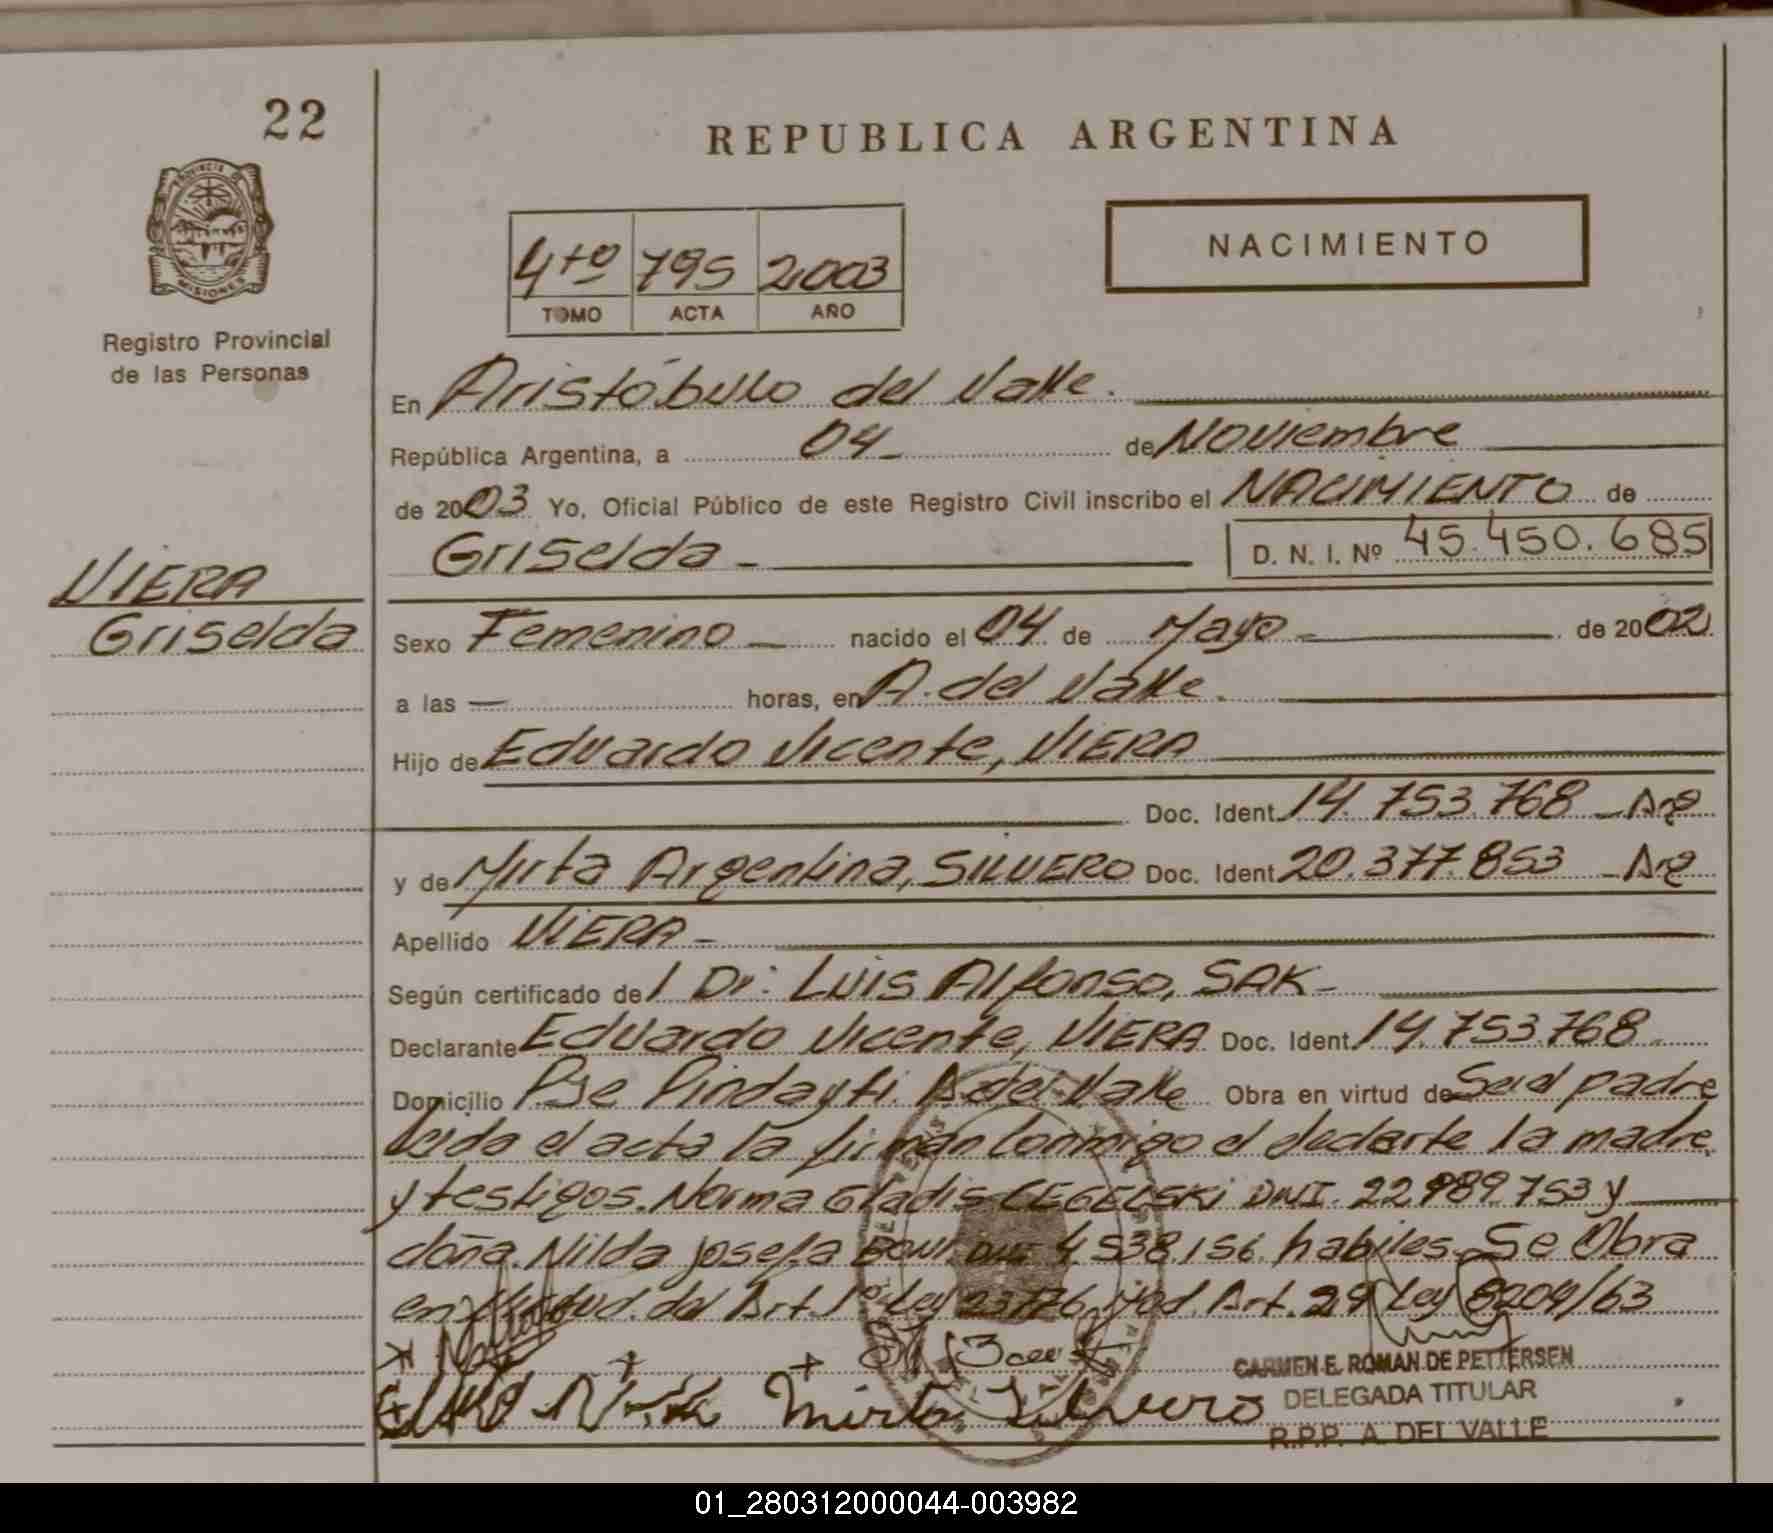 22
REPUBLICA ARGENTINA
PROVINCIA DE
MISIONES
Registro Provincial
de las Personas
4to 795 2003
TOMO ACTA AÑO
NACIMIENTO
En Aristóbulo del Valle.
República Argentina, a 04 de Noviembre
de 2003 Yo, Oficial Público de este Registro Civil inscribo el NACIMIENTO de
Griselda D. N. I. Nº 45.450.685
VIERA
Griselda
Sexo Femenino nacido el 04 de Mayo de 2002
a las — horas, en A. del Valle.
Hijo de Eduardo Vicente, VIERA
Doc. Ident 14.753.768 Arg
y de Mirta Argentina, SILVERO Doc. Ident 20.377.853 Arg
Apellido VIERA
Según certificado del Dr: Luis Alfonso, SAK
Declarante Eduardo Vicente, VIERA Doc. Ident 14.753.768
Domicilio Pje Pindayti. A del Valle Obra en virtud de Ser el padre
Leida el acta la firman conmigo el declarte la madre
y testigos. Norma Gladis CEGELSKI DNI. 22.989.753 y
doña. Nilda Josefa DNI 4.538.156. habiles. Se Obra
en virtud del Art. 1º Ley 23776 y Art. 29 Ley 8204/63
Mirta Silvero
CARMEN E. ROMAN DE PETTERSEN
DELEGADA TITULAR
R.P.P. A. DEL VALLE
01_280312000044-003982